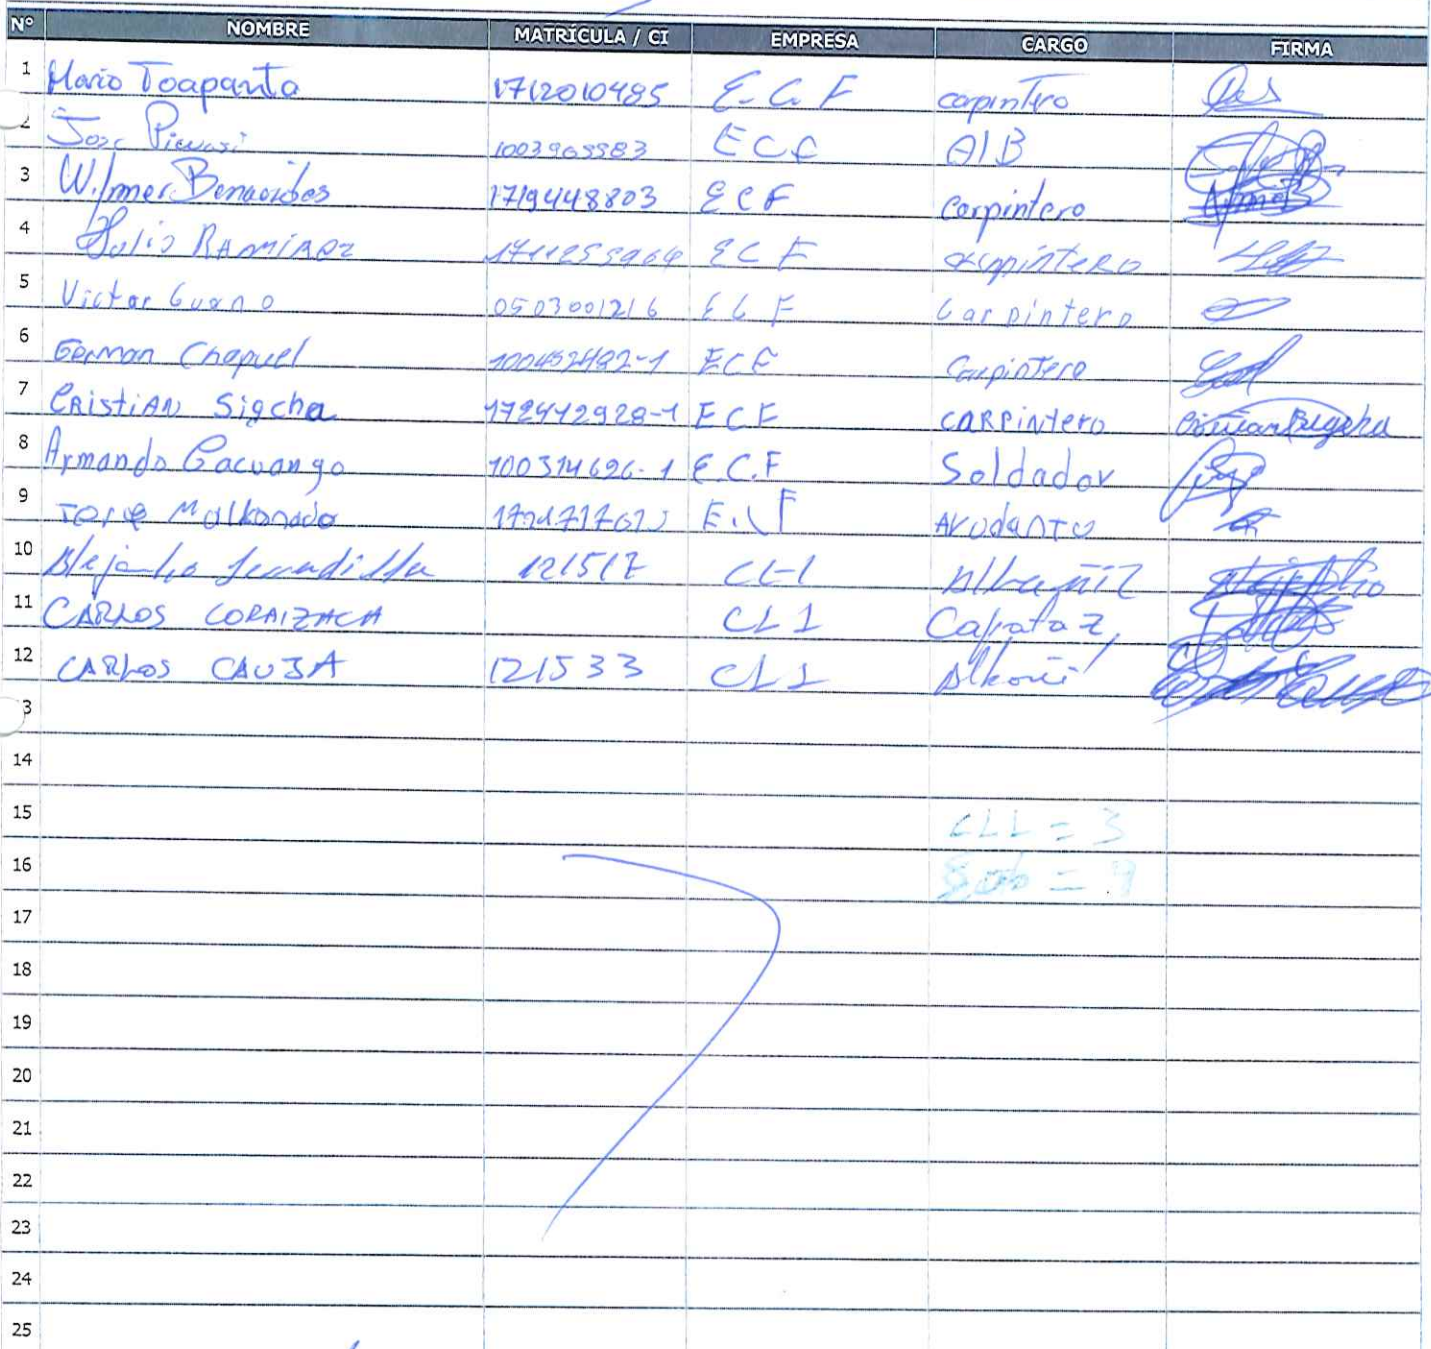 N° NOMBRE MATRÍCULA / CI EMPRESA CARGO FIRMA
1 Mario Toapanta 1712010485 E.C.F carpintero
2 Jose 1003965583 ECF AlB
3 Wilmer Benavides 1719448803 ECF Carpintero
4 Julio RAMIREZ ECF carpintero
5 Victor Guano 0503001216 ECF Carpintero
6 German Chapuel ECF Carpintero
7 CRistiAN Sigcha 172412928-1 ECF CARPintero
8 Armando Cacuango 100314626-1 E.C.F Soldador
9 Jorge Malkonado E.C.F AYUdANTO
10 Alejandro 121517 CL1 Albañil
11 CARLOS CORAIZACA CL1 Capataz
12 CARLOS CAUJA 121533 CL1 Albañil
3
14
15 CL1 = 3
16 Sub = 9
17
18
19
20
21
22
23
24
25